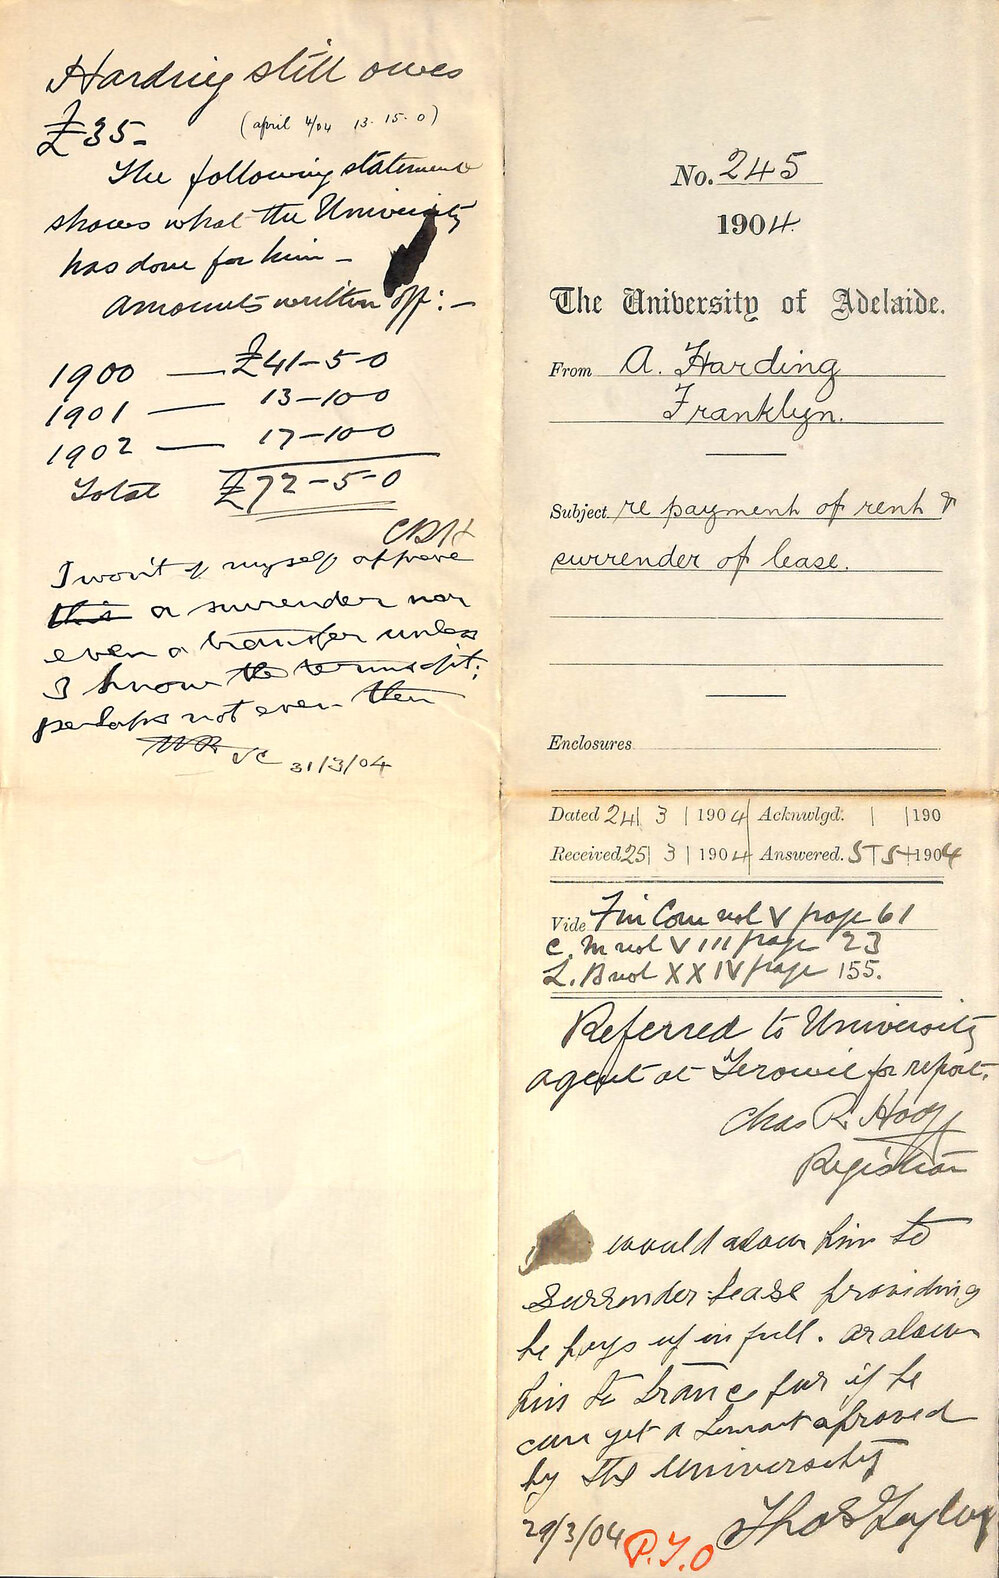 Harding still owes
£35- (april 4/04 13. 15. 0)
The following statement
shows what the University
has done for him -
Amounts written off: -
1900 — £41-5-0
1901 — 13-10-0
1902 — 17-10-0
Total £72-5-0
I won't of myself approve
this a surrender nor
even a transfer unless
I know the terms of it;
perhaps not even then
VC 31/3/04
No. 245
1904
The University of Adelaide.
From A. Harding
Franklyn.
Subject re payment of rent &
surrender of lease.
Enclosures
Dated 24 | 3 | 1904 Acknwlgd. | | 190
Received 25 | 3 | 1904 Answered. 5 | 5 | 1904
Vide Fin Com vol V page 61
C. M vol VIII page 23
L. B vol XXIV page 155.
Referred to University
agent at Terowie for report.
Chas R. Hodge
Registrar
would alow him to
Surrender Lease providing
he pays up in full. or alow
him to trance fur if he
can get a tenant aproved
by the University
29/3/04 P.T.O Thos Taylor